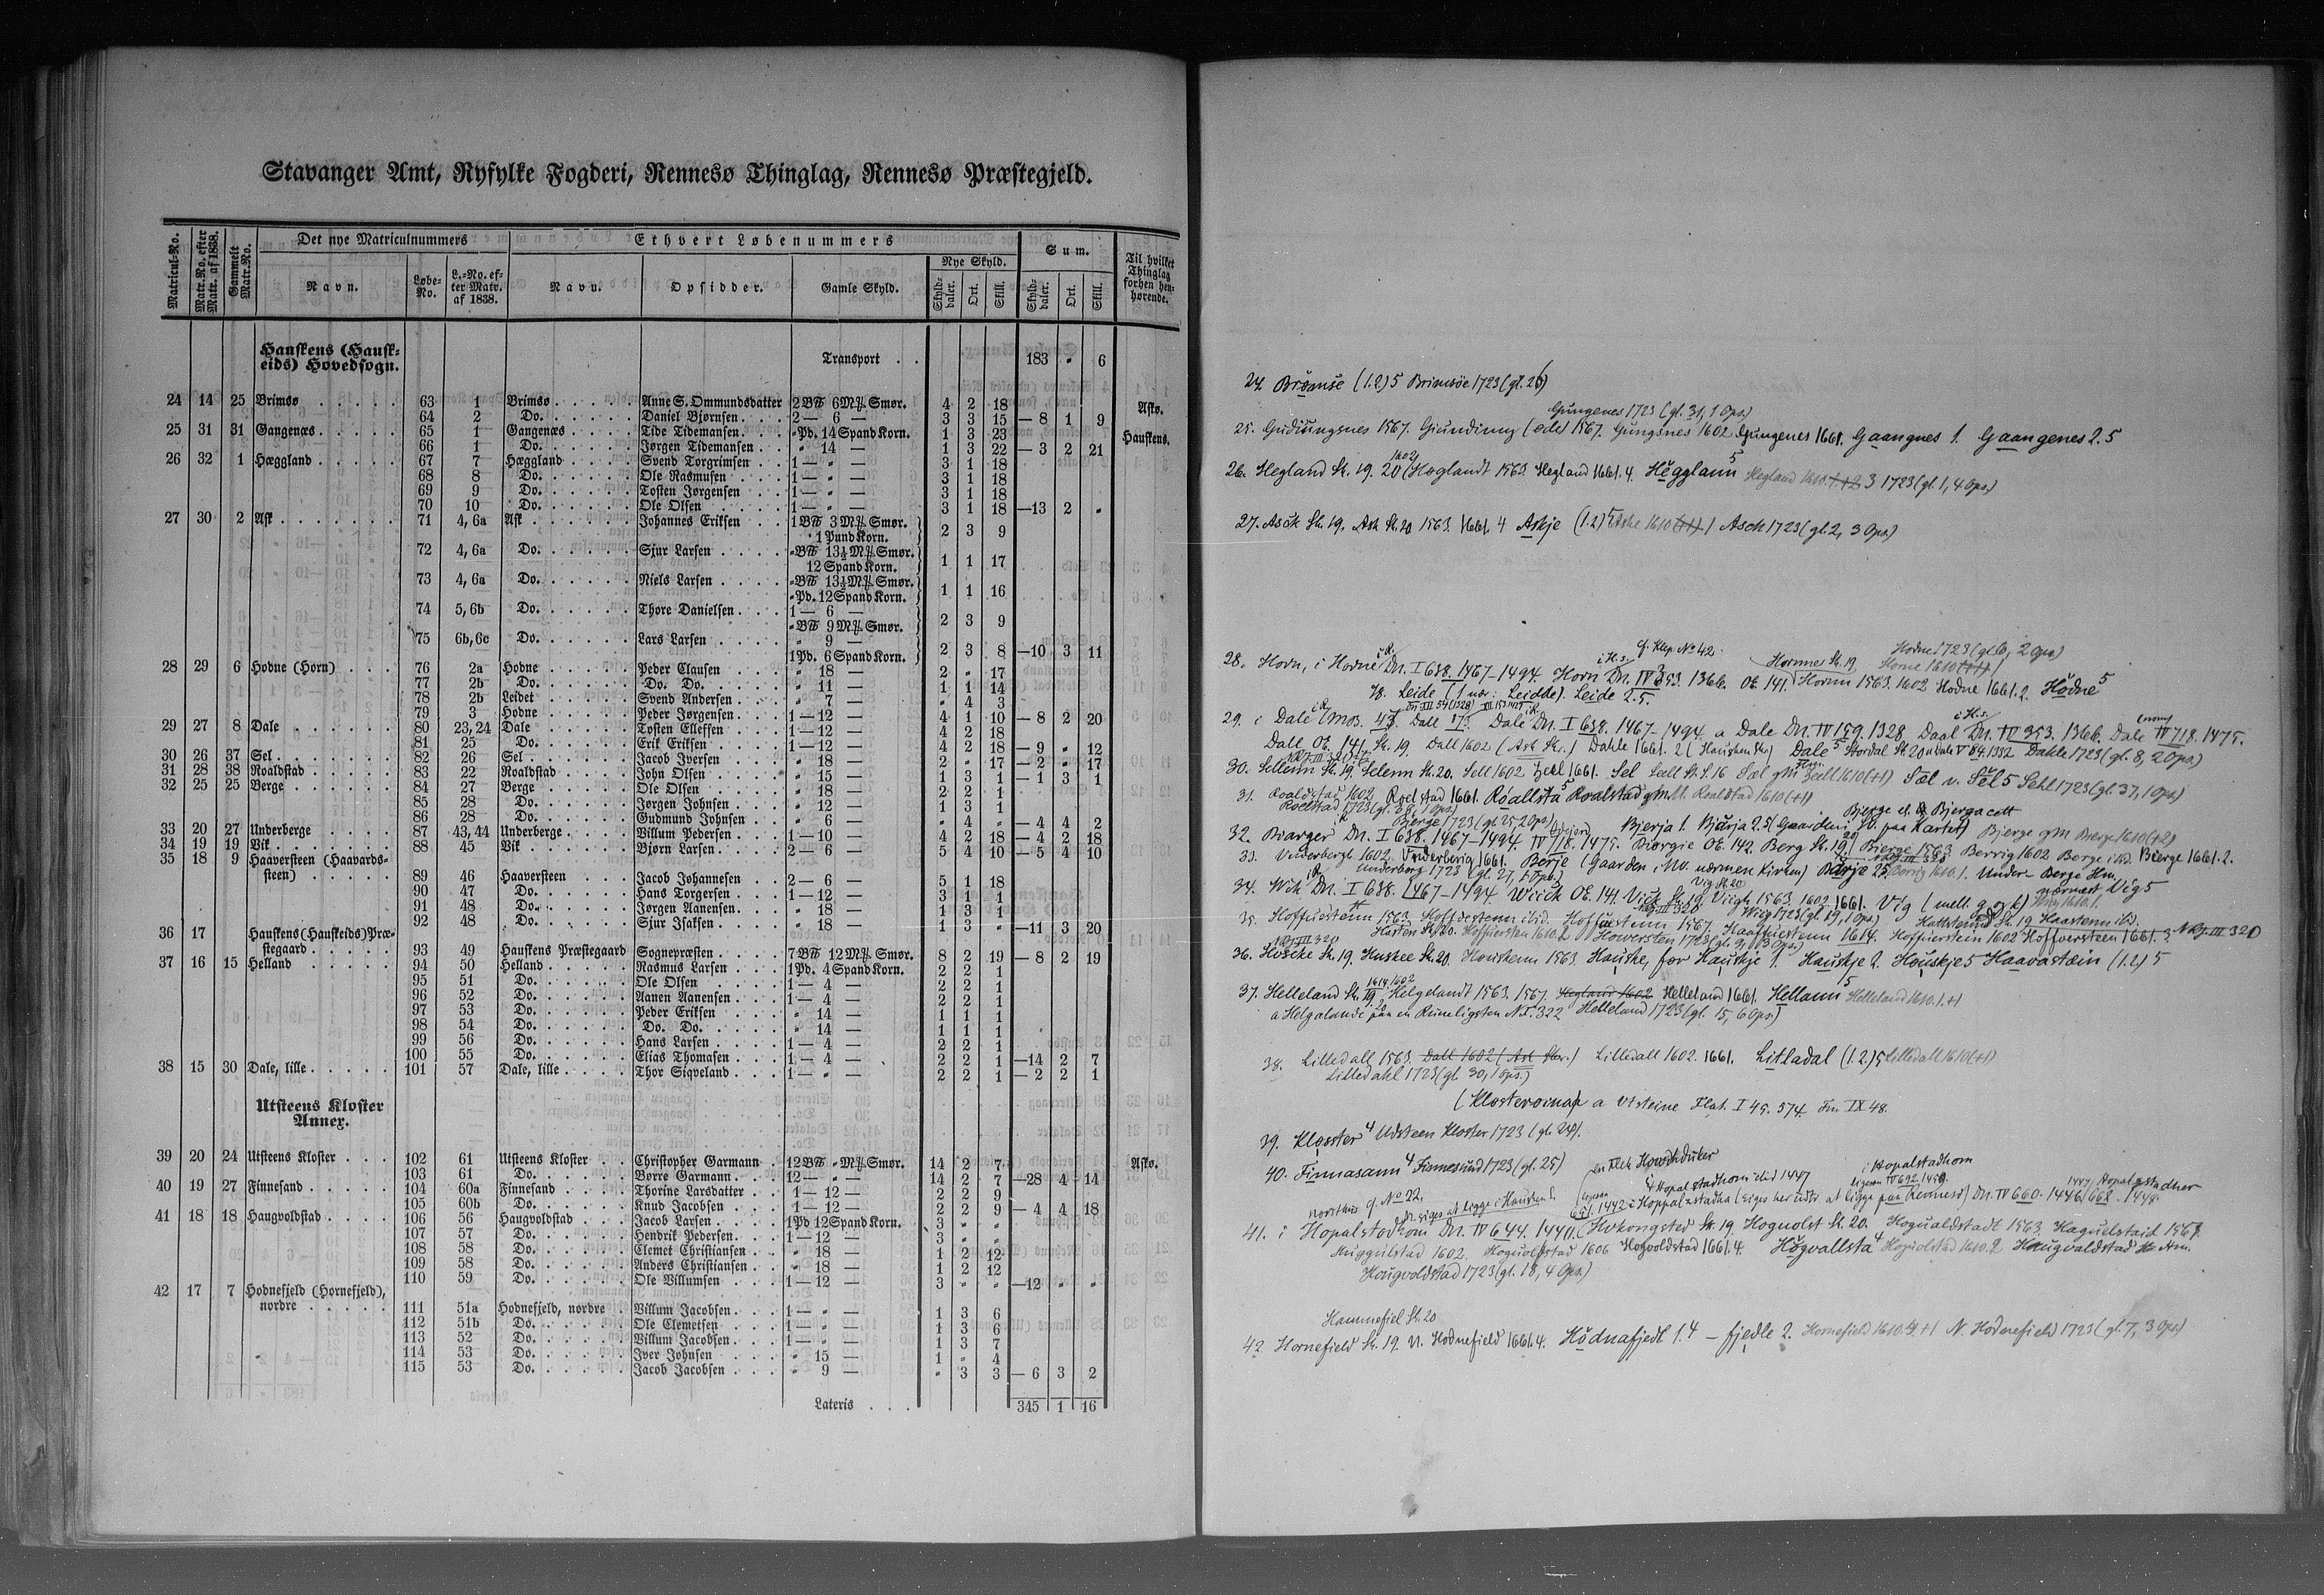 Stavanger Amt, Ryfylke Fogderi, Rennesø Thinglag, Rennesø Præstegjeld.
Matricul-No. Matr.No. efter Matr. af 1838. Gammelt Matr.No. Det nye Matriculnummers Ethvert Løbenummers Sum. Til hvilket Thinglag forhen henhørende.
Navn. Løbe-No. L.-No. efter Matr. af 1838. Navn. Opsidder. Gamle Skyld. Nye Skyld. Skylddaler. Ort. Skill. Skylddaler. Ort. Skill.
Hauskens (Hauskeids) Hovedsogn. Transport . . 183 " 6
24 14 25 Brimsø 63 1 Brimsø Anne S. Ommundsdatter 2 BPd 6 Mk Smør. 4 2 18 Askø.
64 2 Do. Daniel Bjørnsen 2 — 6 — 3 3 15 — 8 1 9
25 31 31 Gangenæs 65 1 Gangenæs Tide Tidemansen " Pd. 14 Spand Korn. 1 3 23 Hauskens.
66 1 Do. Jørgen Tidemansen " 14 — 1 3 22 — 3 2 21
26 32 1 Hæggland 67 7 Hæggland Svend Torgrimsen 1 — " — 3 1 18
68 8 Do. Ole Rasmusen 1 — " — 3 1 18
69 9 Do. Tosten Jørgensen 1 — " — 3 1 18
70 10 Do. Ole Olsen 1 — " — 3 1 18 —13 2 "
27 30 2 Ask 71 4, 6a Ask Johannes Eriksen 1 BPd 3 Mk Smør.
" 1 Pund Korn. 2 3 9
72 4, 6a Do. Sjur Larsen " BPd 13½ Mk Smør.
12 Spand Korn. 1 1 17
73 4, 6a Do. Niels Larsen " BPd 13½ Mk Smør.
" Pd. 12 Spand Korn. 1 1 16
74 5, 6b Do. Thore Danielsen 1 — 6 —
" BPd 9 Mk Smør. 2 3 9
75 6b, 6c Do. Lars Larsen " 9 —
1 Pd. 6 Spand Korn. 2 3 8 —10 3 11
28 29 6 Hodne (Horn) 76 2a Hodne Peder Clausen " 18 — 2 " 17
77 2b Do. Do. Do. " 11 — 1 1 14
78 2b Leidet Svend Andersen " 7 — " 4 3
79 3 Hodne Peder Jørgensen 1 — 12 — 4 1 10 — 8 2 20
29 27 8 Dale 80 23, 24 Dale Tosten Elleffen 1 — 12 — 4 2 18
81 25 Do. Erik Eriksen 1 — 12 — 4 2 18 — 9 " 12
30 26 37 Sel 82 26 Sel Jacob Iversen " 18 — 2 " 17 — 2 " 17
31 28 38 Roaldstad 83 22 Roaldstad John Olsen " 15 — 1 3 1 — 1 3 1
32 25 25 Berge 84 27 Berge Ole Olsen " 18 — 2 2 1
85 28 Do. Jørgen Johnsen " 12 — 1 3 1
86 28 Do. Gudmund Johnsen " 6 — " 4 " — 4 4 2
33 20 27 Underberge 87 43, 44 Underberge Villum Pedersen 1 — 10 — 4 2 18 — 4 2 18
34 19 19 Vik 88 45 Vik Bjørn Larsen 2 — 6 — 5 4 10 — 5 4 10
35 18 9 Haaversteen (Haavards-
steen) 89 46 Haaversteen Jacob Johannesen 2 — 6 — 5 1 18
90 47 Do. Hans Torgersen 1 — 12 — 3 1 1
91 48 Do. Jørgen Aanensen " 18 — 1 3 1
92 48 Do. Sjur Isaksen " 18 — 1 3 " —11 3 20
36 17 Hauskens (Hauskeids) Præ-
stegaard 93 49 Hauskens Præstegaard Sognepræsten 7 BPd 12 Mk Smør. 8 2 19 — 8 2 19
37 16 15 Helland 94 50 Helland Rasmus Larsen 1 Pd. 4 Spand Korn. 2 2 1
95 51 Do. Ole Olsen 1 — 4 — 2 2 1
96 52 Do. Aanen Aanensen 1 — 4 — 2 2 1
97 53 Do. Peder Eriksen " 14 — 1 1 1
98 54 Do. Do. Do. " 14 — 1 1 1
99 56 Do. Hans Larsen 1 — 4 — 2 2 1
100 55 Do. Elias Thomasen 1 — 4 — 2 2 1 —14 2 7
38 15 30 Dale, lille 101 57 Dale, lille Thor Siqveland 1 — " — 2 2 1 — 2 2 1
Utsteens Kloster Annex.
39 20 24 Utsteens Kloster 102 61 Utsteens Kloster Christopher Garmann 12 BPd " Mk Smør. 14 2 7 Askø.
103 61 Do. Børre Garmann 12 — " — 14 2 7 —28 4 14
40 19 27 Finnesand 104 60a Finnesand Thorine Larsdatter 1 — 12 — 2 2 9
105 60b Do. Knud Jacobsen 1 — 12 — 2 2 9 — 4 4 18
41 18 18 Haugvoldstad 106 56 Haugvoldstad Jacob Larsen 1 Pd 12 Spand Korn. 3 " "
107 57 Do. Hendrik Pedersen 1 — 12 — 3 " "
108 58 Do. Clemet Christiansen " 18 — 1 2 12
109 58 Do. Anders Christiansen " 18 — 1 2 12
110 59 Do. Ole Villumsen 1 — 12 — 3 " " —12 " "
42 17 7 Hodnefjeld (Hornefjeld),
nordre 111 51a Hodnefjeld, nordre Villum Jacobsen 1 — " — 1 3 6
112 51b Do. Ole Clemetsen 1 — " — 1 3 6
113 52 Do. Villum Jacobsen 1 — " — 1 3 7
114 53 Do. Iver Johnsen " 15 — 1 " 4
115 53 Do. Jacob Jacobsen " 9 — " 3 3 — 6 3 2
Lateris . . . 345 1 16
24. Brømse (1.2.) 5 Brimsöe 1723 (gl. 26)
Gungenes 1723 (gl. 31, 1 Ops.)
25. Gudiungsnes 1567. Giunding 1567. Gungsnes 1602 Gungenes 1661. Gaangnes 1. Gaangenes 2. 5
26. Hegland St. 19. 20 (Høglandt 1563 Hegland 1661. 4. Hëgglann 5 Hegland 1610. 3 1723 (gl. 1, 4 Ops.)
27. Asck St. 19. Ask St. 20 1563. 1661. 4 Askje (1.2) 5 Aske 1610 Asch 1723 (gl. 2, 3 Ops.)
cf. Klep No 42. Hodne 1723 (gl. 6, 2 Ops)
28. Horn, i Horne Dn. I 638. 1467–1494. Horn Dn. IV 353. 1366. OE. 141. Hornnes St. 19 Hornn 1563. 1602 Hodne 1661. 2. Hödne 5
78. Leide (1 nær: Leidde). Leide 2. 5.
29. i Dale Mos. 47. Dall 17. Dale Dn. I 638. 1467–1494. a Dale Dn. IV 159. 1328. Daal Dn. IV 353. 1366. Dale IV 718. 1475.
Dall OE. 141. St. 19. Dall 1602 (Ask Skr.) Dahle 1661. 2 (Hausken Skr.) Dale 5 Stordal St. 20 Dahle 1723 (gl. 8, 2 Ops.)
30. Sellenn St. 19. Selenn St. 20. Sell 1602 Zell 1661. Sel Zell 1610 (+1) Sæl v. Sël 5 Sehl 1723 (gl. 37, 1 Ops.)
31. Roaldstad 1602. Roelstad 1661. Róallsta 5 Roalstad gmM. Roalstad 1610 (+1)
Roelstad 1723 (gl. 38, 1 Ops.) Bjerge el. Bjerga
Bierge 1723 (gl. 25, 2 Ops.)
32. Biarger Dn. I 638. 1467–1494. IV 718. 1475. Biorgie OE. 142. Berg St. 19. Bierge 1563. Berrig 1602 Berge ibid. Bierge 1661. 2.
Bjerja 1. Bjärja 2. 5 (Gaarden paa Kartet) Bjerge gM Bierge 1610 (+2)
33. Vnderbergh 1602. Vnderberig 1661. Berje (Gaarden i NV. nærmen Kirken) Bärje 2. 5. Berrig 1610. 1. Under Berge Hm.
Underberg 1723 (gl. 27, 1 Ops.)
34. Wik Dn. I 638. 1467–1494. Wiick OE. 141. Vick St. 19. Viigh 1563. 1602 1661. Vig (mell. g og k) nærmest Vig 5
Wiig 1723 (gl. 19, 1 Ops.) Wiig 1610. 1.
35. Hoffuistenn 1563. Hoffuestenn ibid. Hoffuestenn 1567. Haaffuiestenn 1614. Hoffuerstein 1602 Hoffversteen 1661. 3. NRJ. III 320
Harsten St. 20. Hoffuersten 1610. 2 Howersten 1723 (gl. 9, 3 Ops)
36. Höscke St. 19. Huskee St. 20. Houskenn 1563. Hauske, før Hauskje 1. Hauskje 2. Houskje 5 Haavastæin (1.2) 5
37. Helleland St. 19. Helgelandt 1563. 1567. Hegland 1602 Helleland 1661. Hellann 5 Helleland 1610. 1. +1
a Helgalande paa en Runeligsten N.I. 322 Helleland 1723 (gl. 15, 6 Ops)
38. Lilledall 1563. Dall 1602 (Ask Skr.) Lilledall 1602. 1661. Litladal (1.2) 5 Lilledall 1610 (+1)
Lilledahl 1723 (gl. 30, 1 Ops.)
a Vtsteine Flat. I 45. 574. Fm. IX 48.
39. Klosster 4 Udsteen Kloster 1723 (gl. 24).
40. Finnasann 4 Finnesund 1723 (gl. 25)
cf. No 22. i Hopalstadhom
41. i Hopalstodhom Dn. IV 644. 1440. (Hokongsted St. 19. Hoguolst St. 20. Hogualdstadt 1563. Haguelstaid 1567.
1602. Hoguolstad 1606 Hogvoldstad 1661. 4. Högvallsta 4 Hoguolstad 1610. 2 Haugvaldstad Hm.
Hougvoldstad 1723 (gl. 18, 4 Ops.)
Hammefiel St. 20
42. Hornefield St. 19. N. Hodnefield 1661. 4. Hödnafjedl 1. 4 – fjedle 2. Hornefield 1610. 4. +1 N. Hodnefield 1723 (gl. 7, 3 Ops)